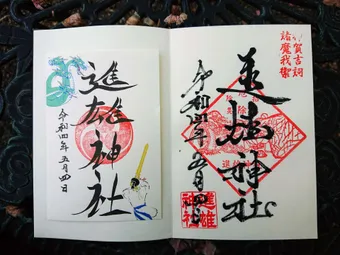 賀吉詞
諸魔我禦
進雄神社
令和四年五月四日
進雄
神社
進雄神社
令和四年五月四日